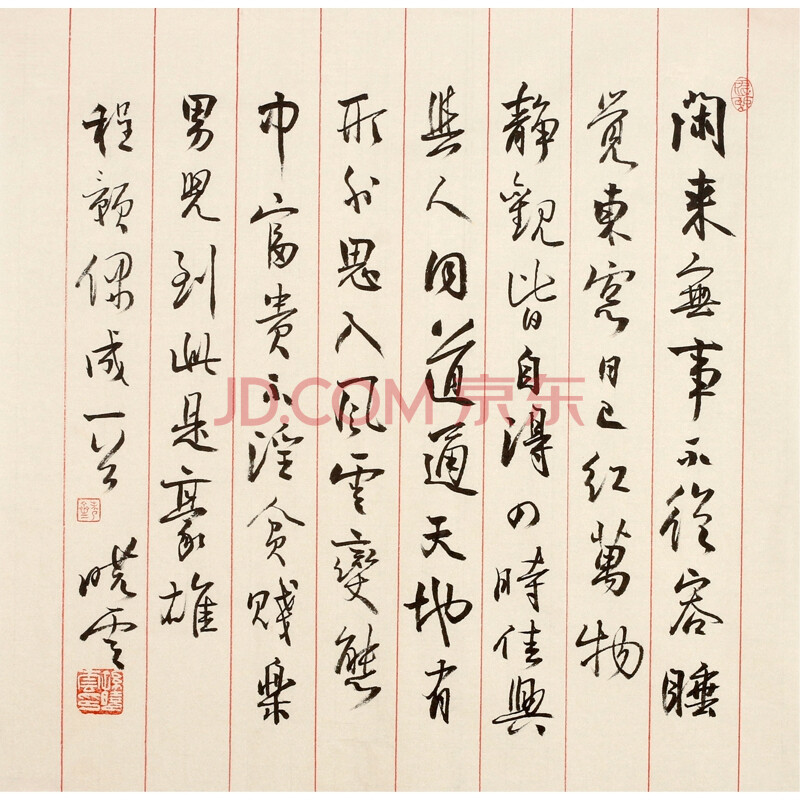 閑来無事不從容睡
覺東窓日已紅萬物
静觀皆自得四時佳興
與人同道通天地有
形外思入風雲變態
中富貴不淫貧賤樂
男兒到此是豪雄
程颢偶成一首
曉雲
JD.COM 京东